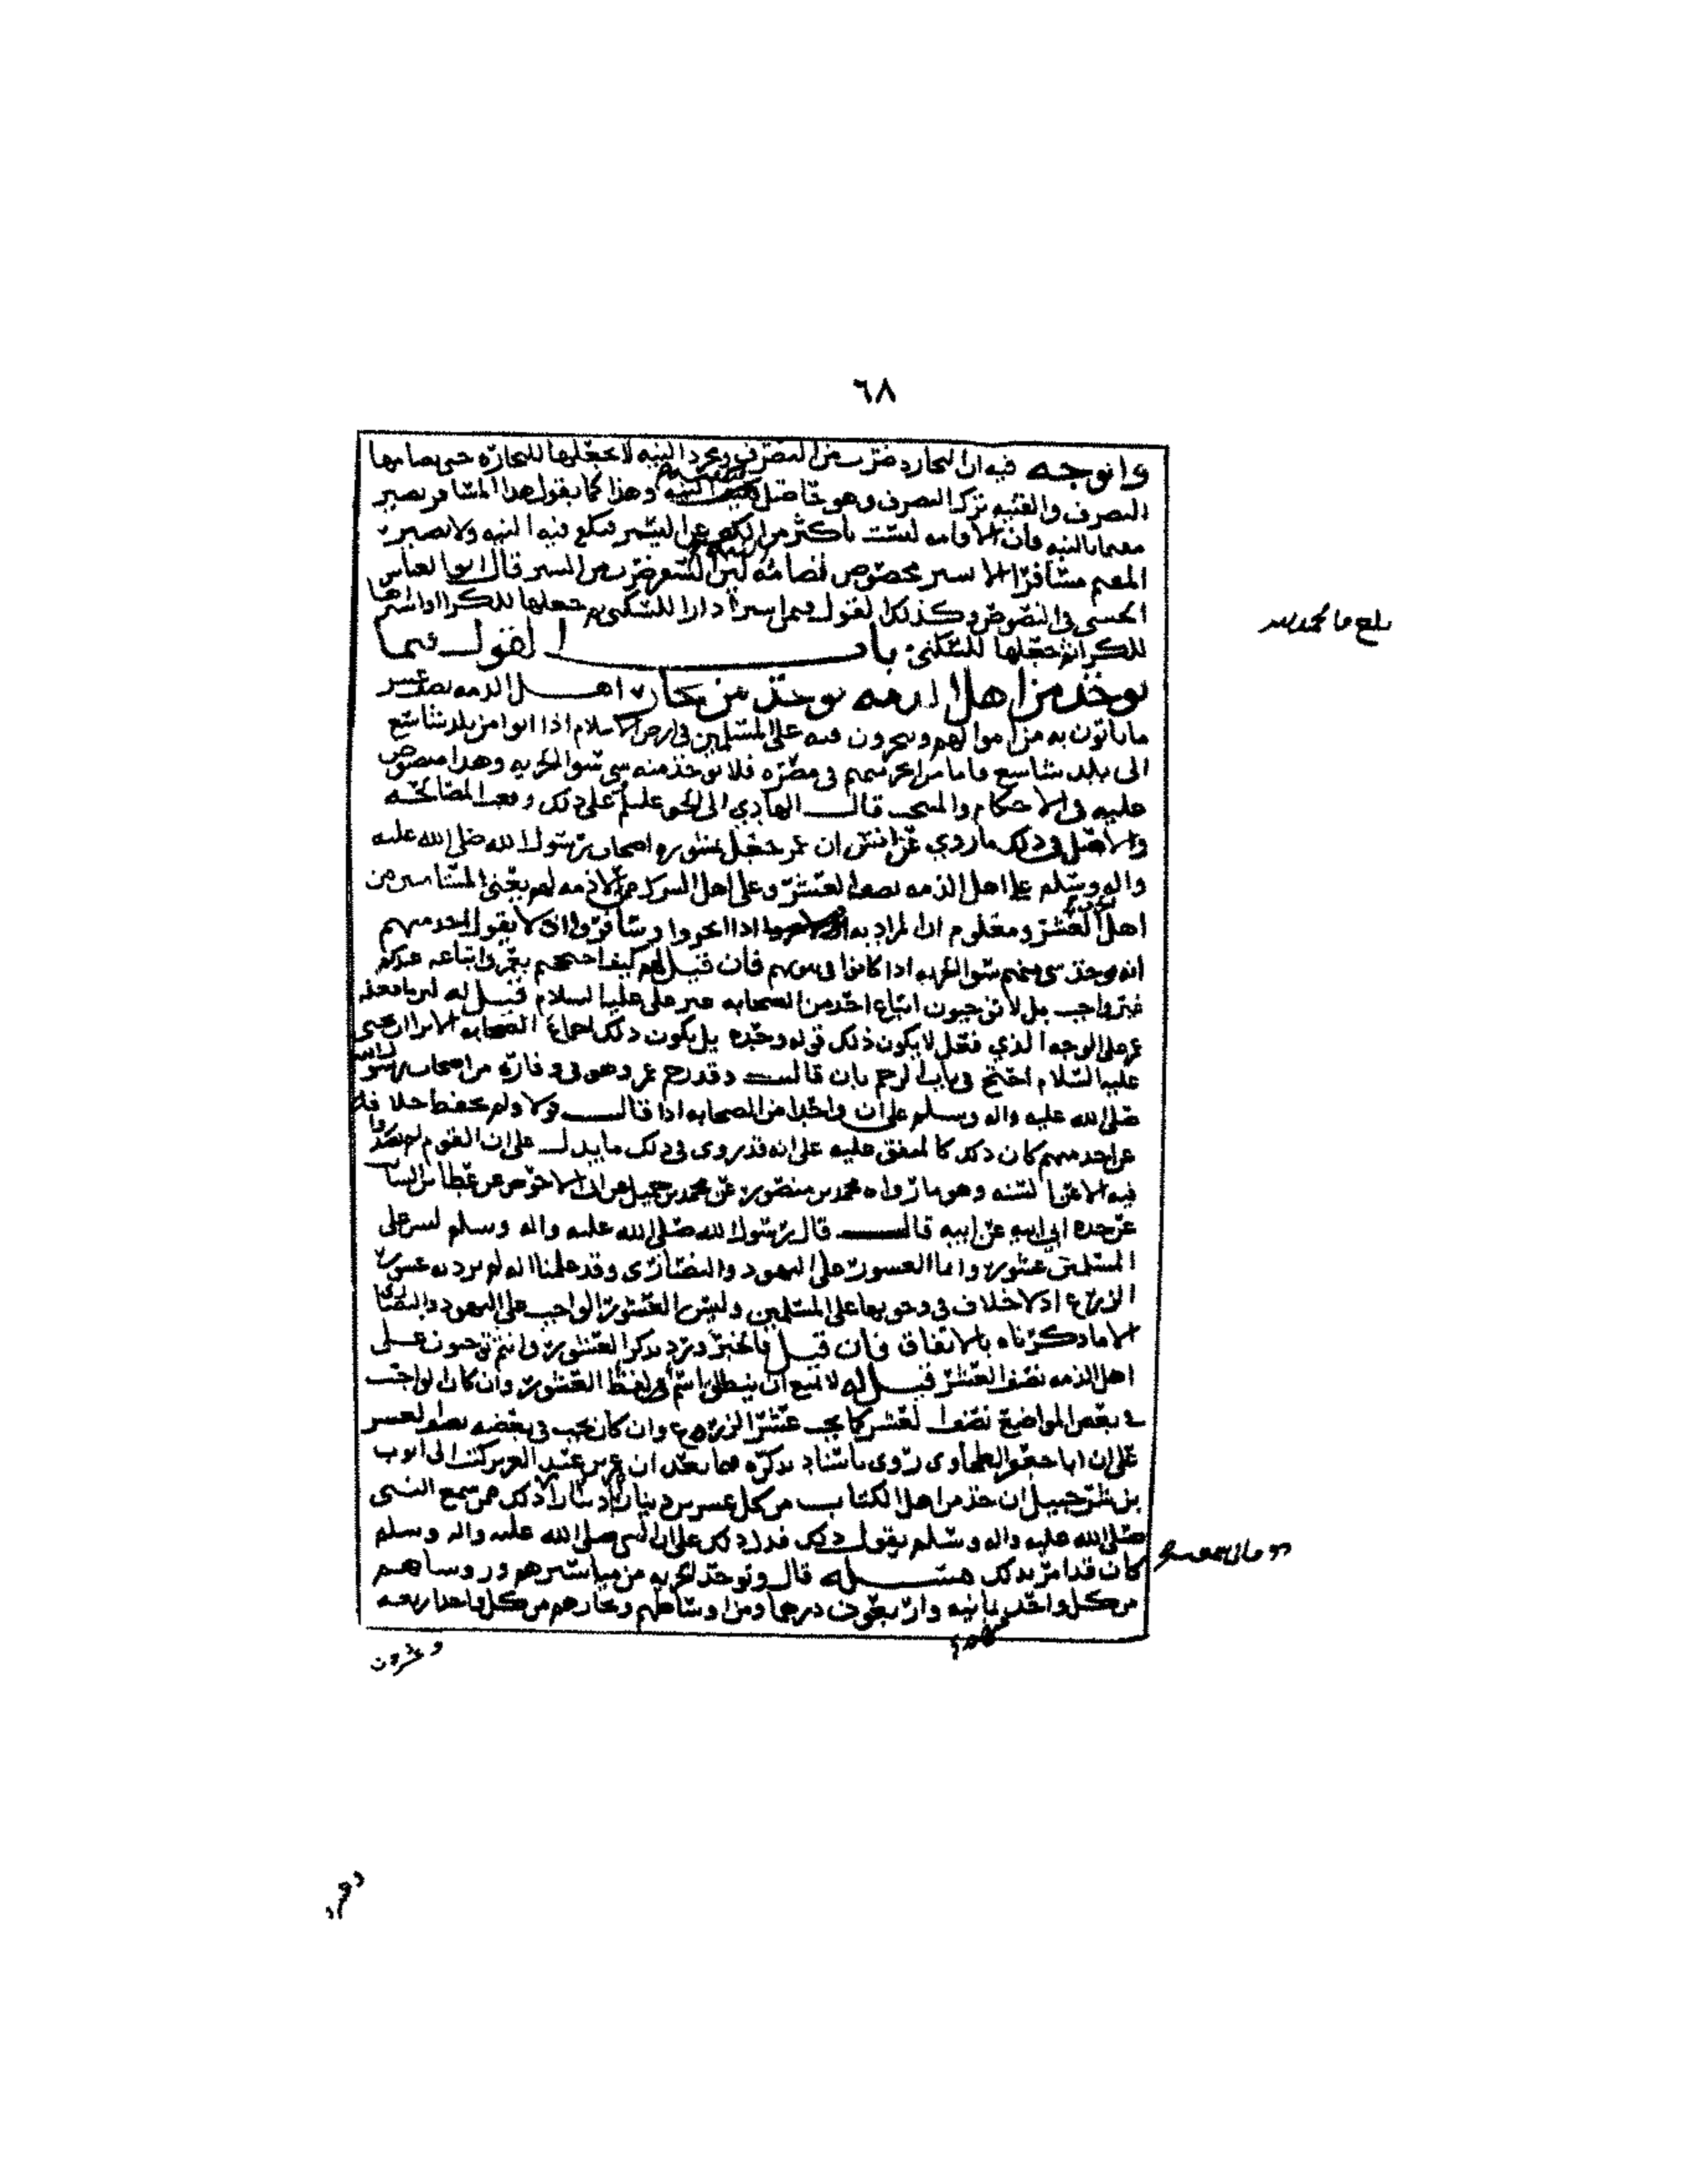 ٦٨
والوجه فيه ان التجارة ضرب من التصرف ومجرد النية لا تجعلها للتجارة حتى يضامها
التصرف والقنية ترك التصرف وهو حاصل وهذا كما يقول هذا المسافر يصير
مقيما بالنية فان الاقامة ليست باكثر من الكف عن السير فتكفي فيه النية ولا يصير
المقيم مسافرا الا بسير مخصوص لان السفر ضرب من السير قال ابو العباس
الحسني في النصوص وكذلك القول فيمن اشترى دارا للسكنى ثم جعلها للكرا او اشتراها
للكرا ثم جعلها للسكنى باب القول فيما
يوخذ من اهل الذمة يوخذ من تجار اهل الذمة نصف عشر
ما ياتون به من اموالهم ويتجرون فيه على المسلمين في ارض الاسلام اذا اتوا من بلد شاسع
الى بلد شاسع فاما من اتجر منهم في مصره فلا يوخذ منه شي سوا الجزية وهذا منصوص
عليه في الاحكام والمنتخب قال الهادي الى الحق عليلم على ذلك وقعت المصالحة
والاصل في ذلك ما روي عن انس ان عمر جعل بمشورة اصحاب رسول الله صلى الله عليه
واله وسلم على اهل الذمة نصف العشر وعلى اهل الشرك ممن لا ذمة لهم يعني المستامنين من
اهل العشر ومعلوم ان المراد به اذا اتجروا وسافروا لان لا يقول احد منهم
انه يوخذ شي منهم سوا الجزية اذا كانوا في بيوتهم فان قيل لهم كيف احتججتم بعمر واتباعه عندكم
غير واجب بل لا توجبون اتباع احد من الصحابة غير على عليه السلام قيل له ان ما فعله
عمر على الوجه الذي فعل لا يكون ذلك قوله وحده بل يكون ذلك اجماع الصحابة الا ترا ان يحيى
عليه السلام احتج في باب الرجم بان قال وقد رجم عمر وهو في وفارة من اصحاب رسول الله
صلى الله عليه واله وسلم على ان واحدا من الصحابة اذا قال قولا ولم يحفظ خلافه
عن احد منهم كان ذلك كالمتفق عليه على انه قد روى في ذلك ما يدل على ان القوم لم يصدروا
فيه الا عن السنة وهو ما رواه محمد بن منصور عن محمد بن جميل عن ابي الاحوص عن عطا بن السائب
عن جده ابي امه عن ابيه قال قال رسول الله صلى الله عليه واله وسلم ليس على
المسلمين عشور وانما العشور على اليهود والنصارى وقد علمنا انه لم يرد به عشور
الزرع اذ لا خلاف في وجوبها على المسلمين وليس العشور الواجب على اليهود والنصارى
الا ما ذكرناه بالاتفاق فان قيل فالخبر ورد بذكر العشور وانتم توجبون على
اهل الذمة نصف العشر قيل له لا يمتنع ان ينطلق اسم ولفظ العشور وان كان الواجب
في بعض المواضع نصف العشر كما يجب عشر الزرع وان كان يجب في بعضه نصف العشر
على ان ابا جعفر الطحاوى روى باسناد يذكره فيما بعد ان عمر بن عبد العزيز كتب الى ايوب
بن شرحبيل ان خذ من اهل الكتاب من كل عشرين دينارا دينارا ذلك عمن سمع النبى
صلى الله عليه واله وسلم يقول ذلك فدل ذلك على ان النبي صلى الله عليه واله وسلم
كان قد امر بذلك مسئلة قال وتوخذ الجزية من مياسيرهم وروسايهم
من كل واحد ثمانية واربعون درهما ومن اوساطهم وتجارهم من كل واحد اربعة
وعشرون